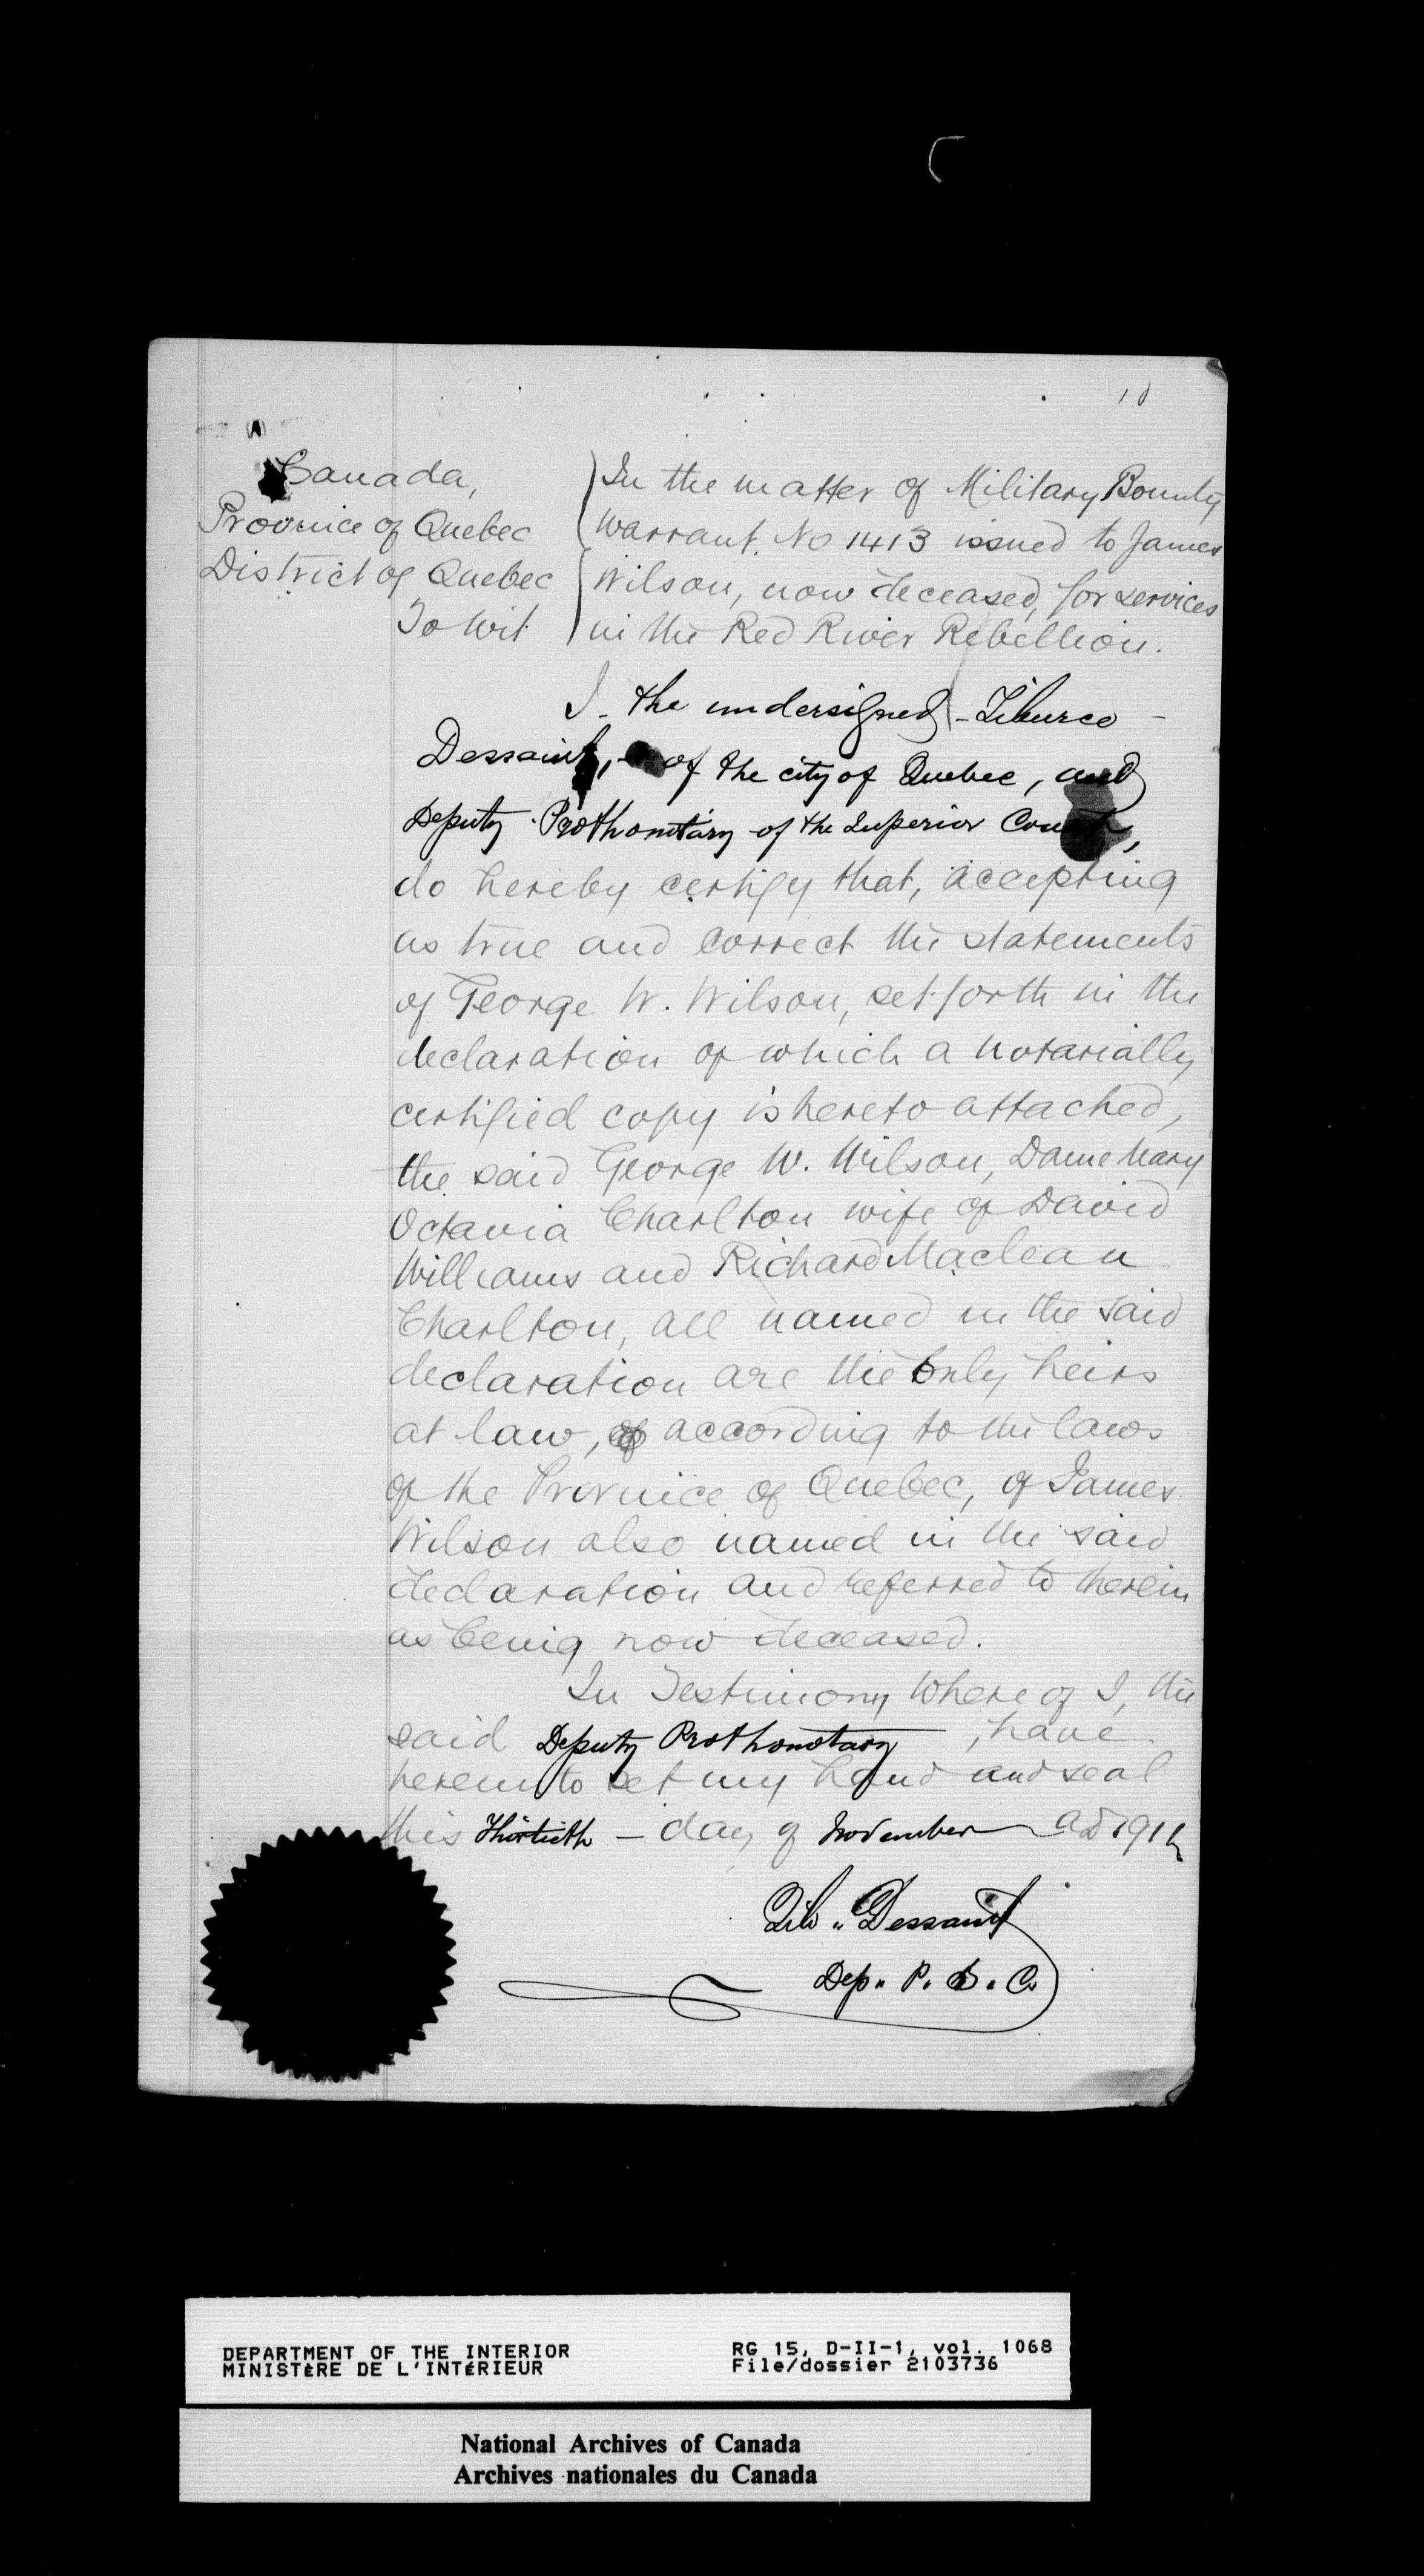 10
Canada,
Province of Quebec
District of Quebec
To Wit
In the matter of Military Bounty
Warrant. No 1413 issued to James
Wilson, now deceased, for services
in the Red River Rebellion.
I - the undersigned - Tiburce -
Dessaint, of the city of Quebec, and
Deputy Prothonotary of the Superior Court,
do hereby certify that, accepting
as true and correct the statements
of George W. Wilson, set forth in the
declaration of which a notarially
certified copy is hereto attached,
the said George W. Wilson, Dame Mary
Octavia Charlton wife of David
Williams and Richard Maclean
Charlton, all named in the said
declaration are the only heirs
at law, according to the laws
of the Province of Quebec, of James
Wilson also named in the said
declaration and referred to therein
as being now deceased.
In Testimony Where of I, the
said Deputy Prothonotary, have
hereunto set my hand and seal
this Thirtieth - day of November AD
Tib. Dessaint
Dep. P. S. C.
DEPARTMENT OF THE INTERIOR
MINISTÈRE DE L'INTÉRIEUR
RG 15, D-II-1, vol. 1068
File/dossier 2103736
National Archives of Canada
Archives nationales du Canada